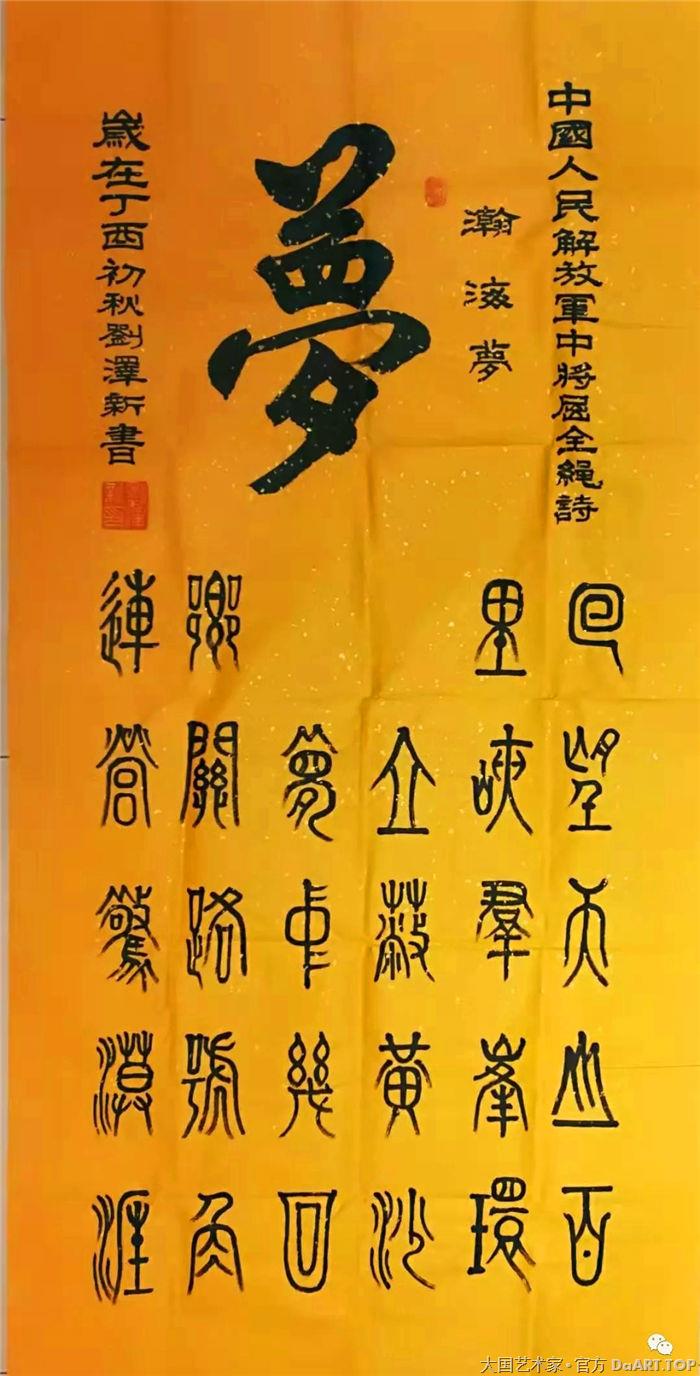 中國人民解放軍中將屈全繩詩
瀚海夢
夢
歲在丁酉初秋劉澤新書
回望天山百
里峽羣峯環
立蔽黃沙
夢幾回
關路號角
連營驚漠涯
大国艺术家·官方 DaART.TOP